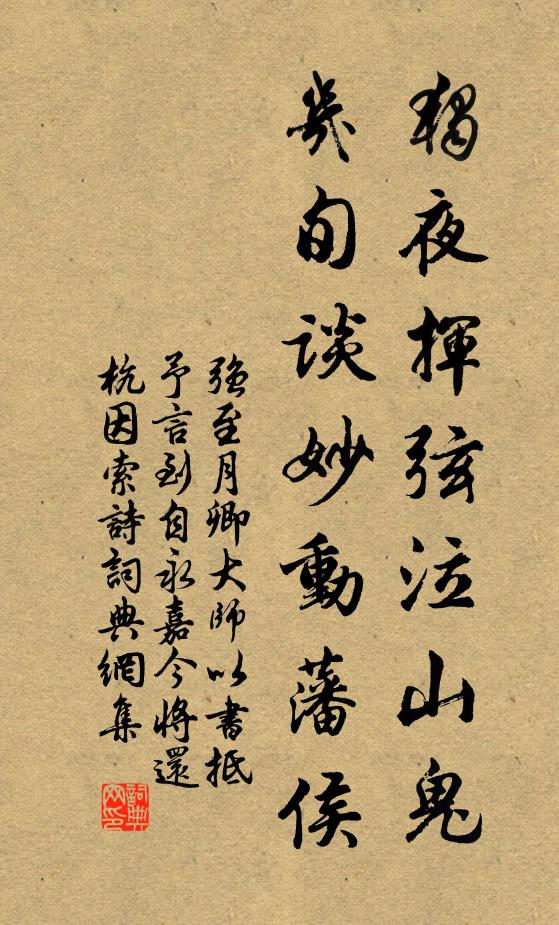 獨夜揮弦泣山鬼
幾旬談妙動藩侯
強至月卿大師以書抵
予言到自永嘉今將還
杭因索詩詞典網集
詞典網印